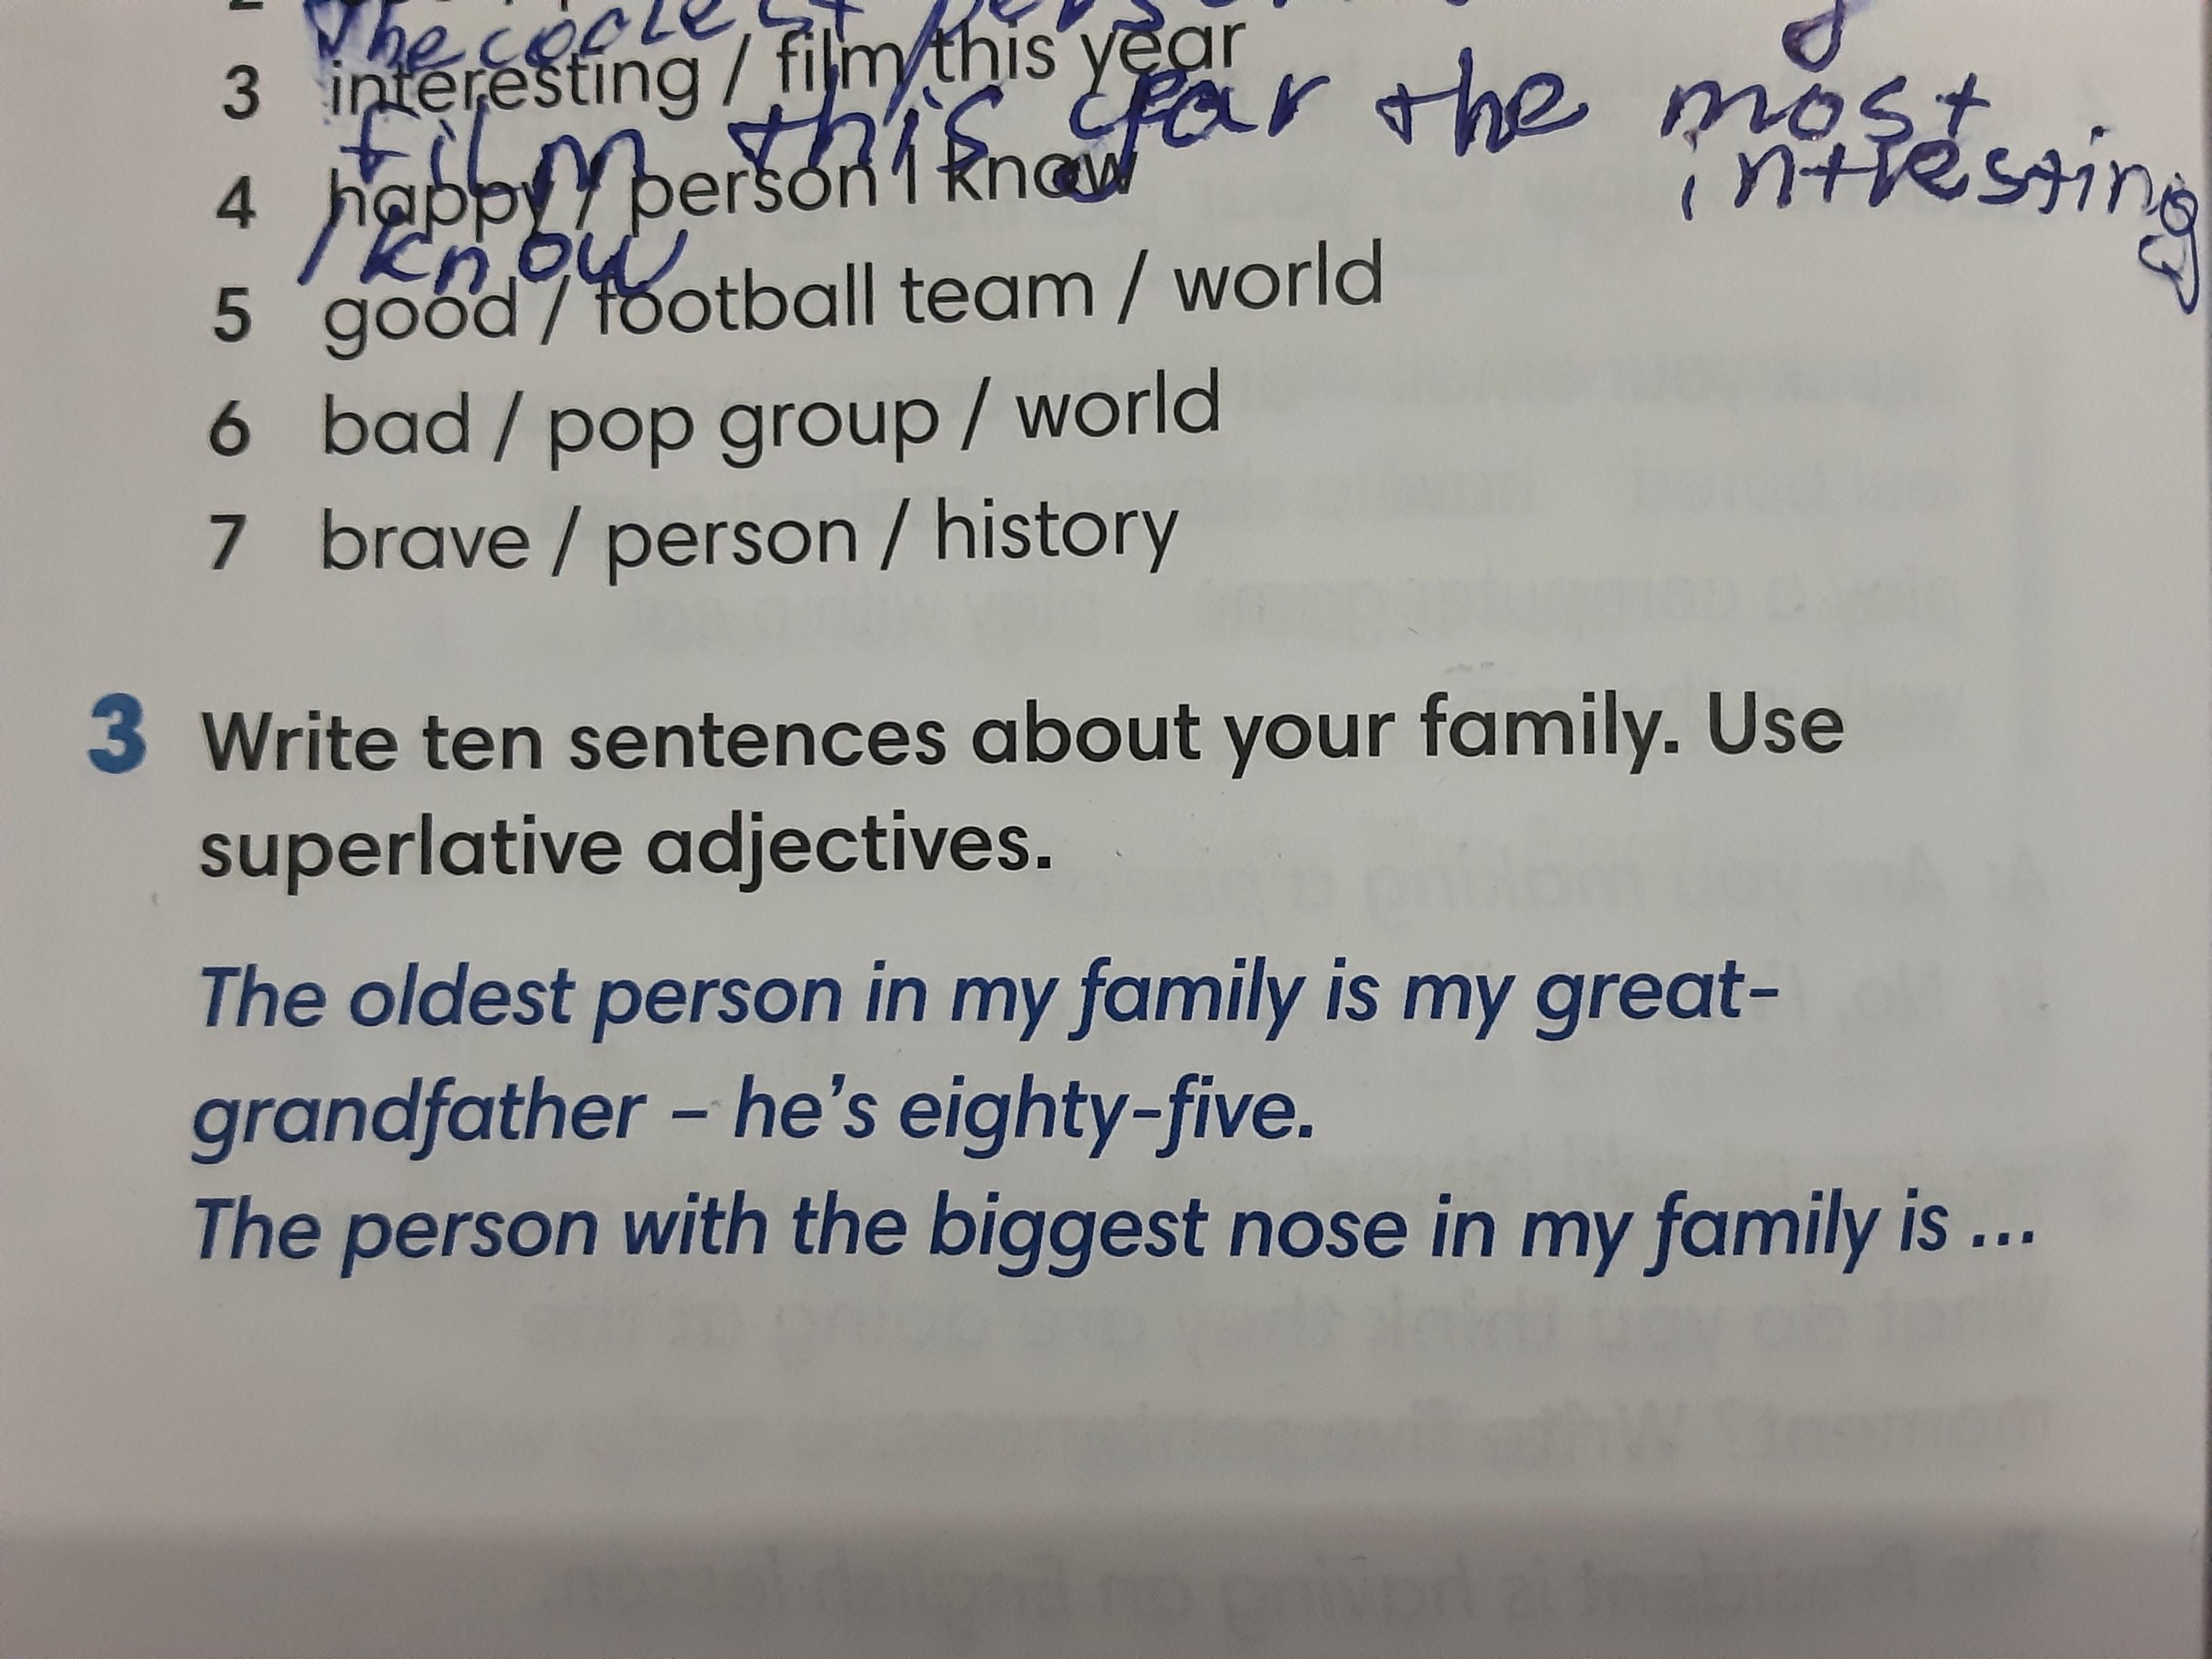 The coolest
3 interesting / film this year
film this year the most
intresting
4 happy / person I know
I know
5 good / football team / world
6 bad / pop group / world
7 brave / person / history
3 Write ten sentences about your family. Use
superlative adjectives.
The oldest person in my family is my great-
grandfather – he's eighty-five.
The person with the biggest nose in my family is ...